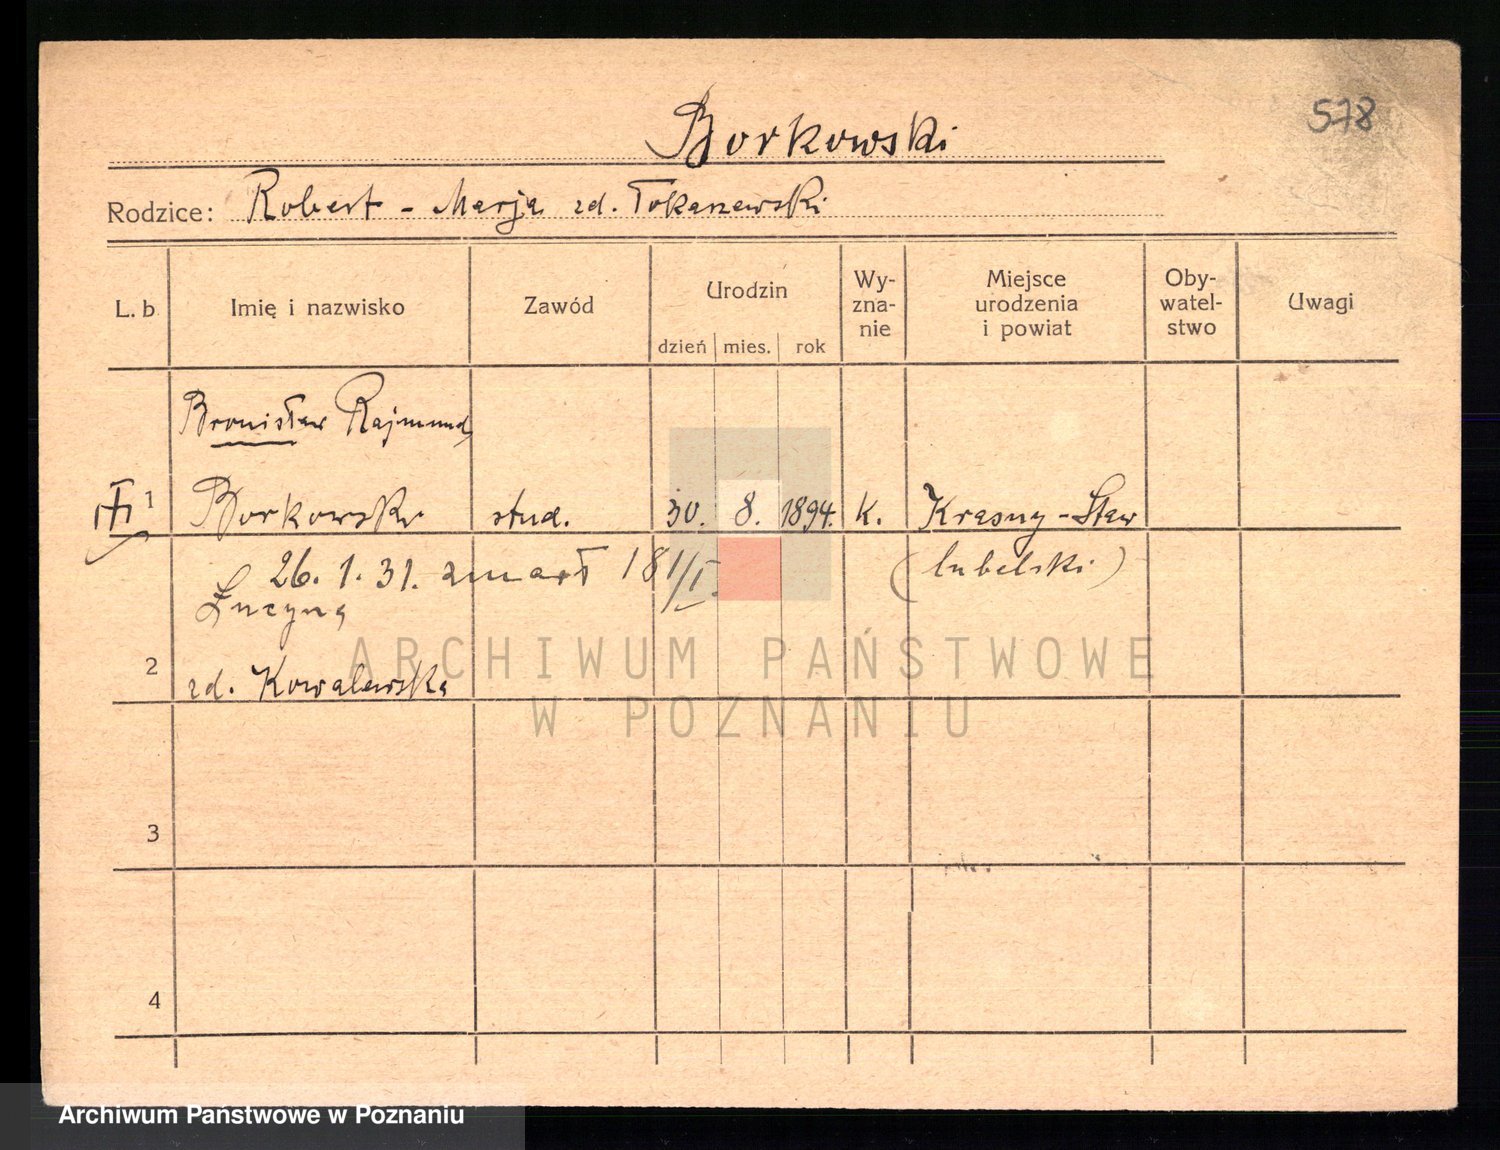 578
Borkowski
Rodzice: Robert - Marja zd. Tokaszewski
L. b
Imię i nazwisko
Zawód
Urodzin
dzień mies. rok
Wy-
zna-
nie
Miejsce
urodzenia
i powiat
Oby-
watel-
stwo
Uwagi
Bronisław Rajmund
1 Borkowski stud. 30. 8. 1894. k. Krasny-Staw
26. 1. 31. zmarł 181/I. (lubelski)
Lucyna
2 zd. Kowalewska
3
4
ARCHIWUM PAŃSTWOWE
W POZNANIU
Archiwum Państwowe w Poznaniu